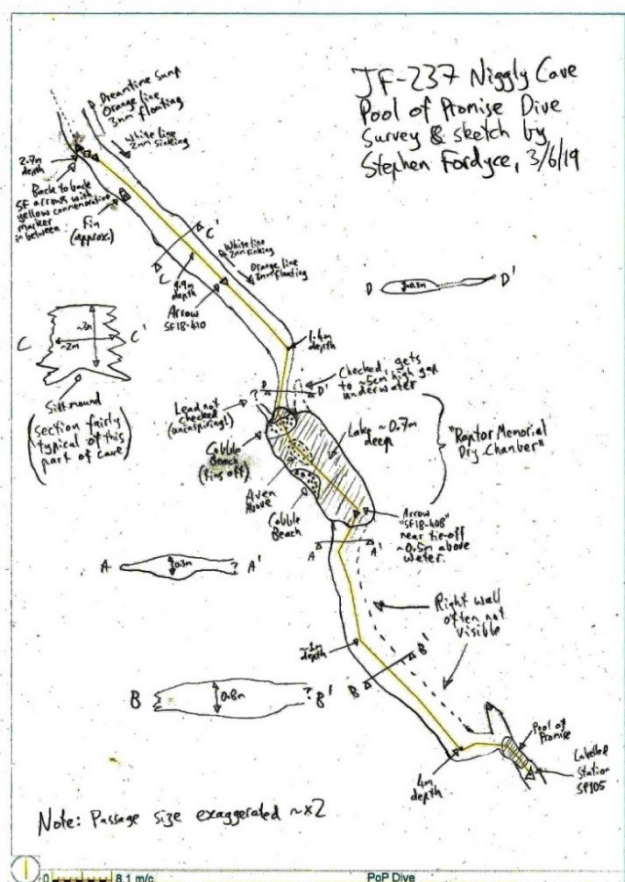 JF-237 Niggly Cave
Pool of Promise Dive
Survey & sketch by
Stephen Fordyce, 3/6/19
Dreamtime Sump
Orange line
3mm floating
White line
2mm sinking
2.7m
depth
Back to back
SF arrows with
yellow commemorative
marker
in between
Fin
(approx.)
C'
C
White line
2mm sinking
Orange line
3mm floating
depth
Arrow
SF18-410
D
~0.3m
D'
C
~3m
~2m
C'
Silt mound
(section fairly
typical of this
part of cave)
1.4m
depth
Checked, gets
to ~5cm high gap
underwater
D
D'
Lead not
checked
(uninspiring!)
Cobble
Beach
(fins off)
Lake ~0.7m
deep
"Raptor Memorial
Dry Chamber"
Aven
Above
Cobble
Beach
Arrow
"SF18-408"
near tie-off
~0.5m above
water.
A
A'
A
0.3m
? A'
Right wall
often not
visible
~2m
depth
B'
B
B
0.8m
? B'
Pool of
Promise
Labelled
Station
SP105
4m
depth
Note: Passage size exaggerated ~x2
0
8.1 m/c
PoP Dive